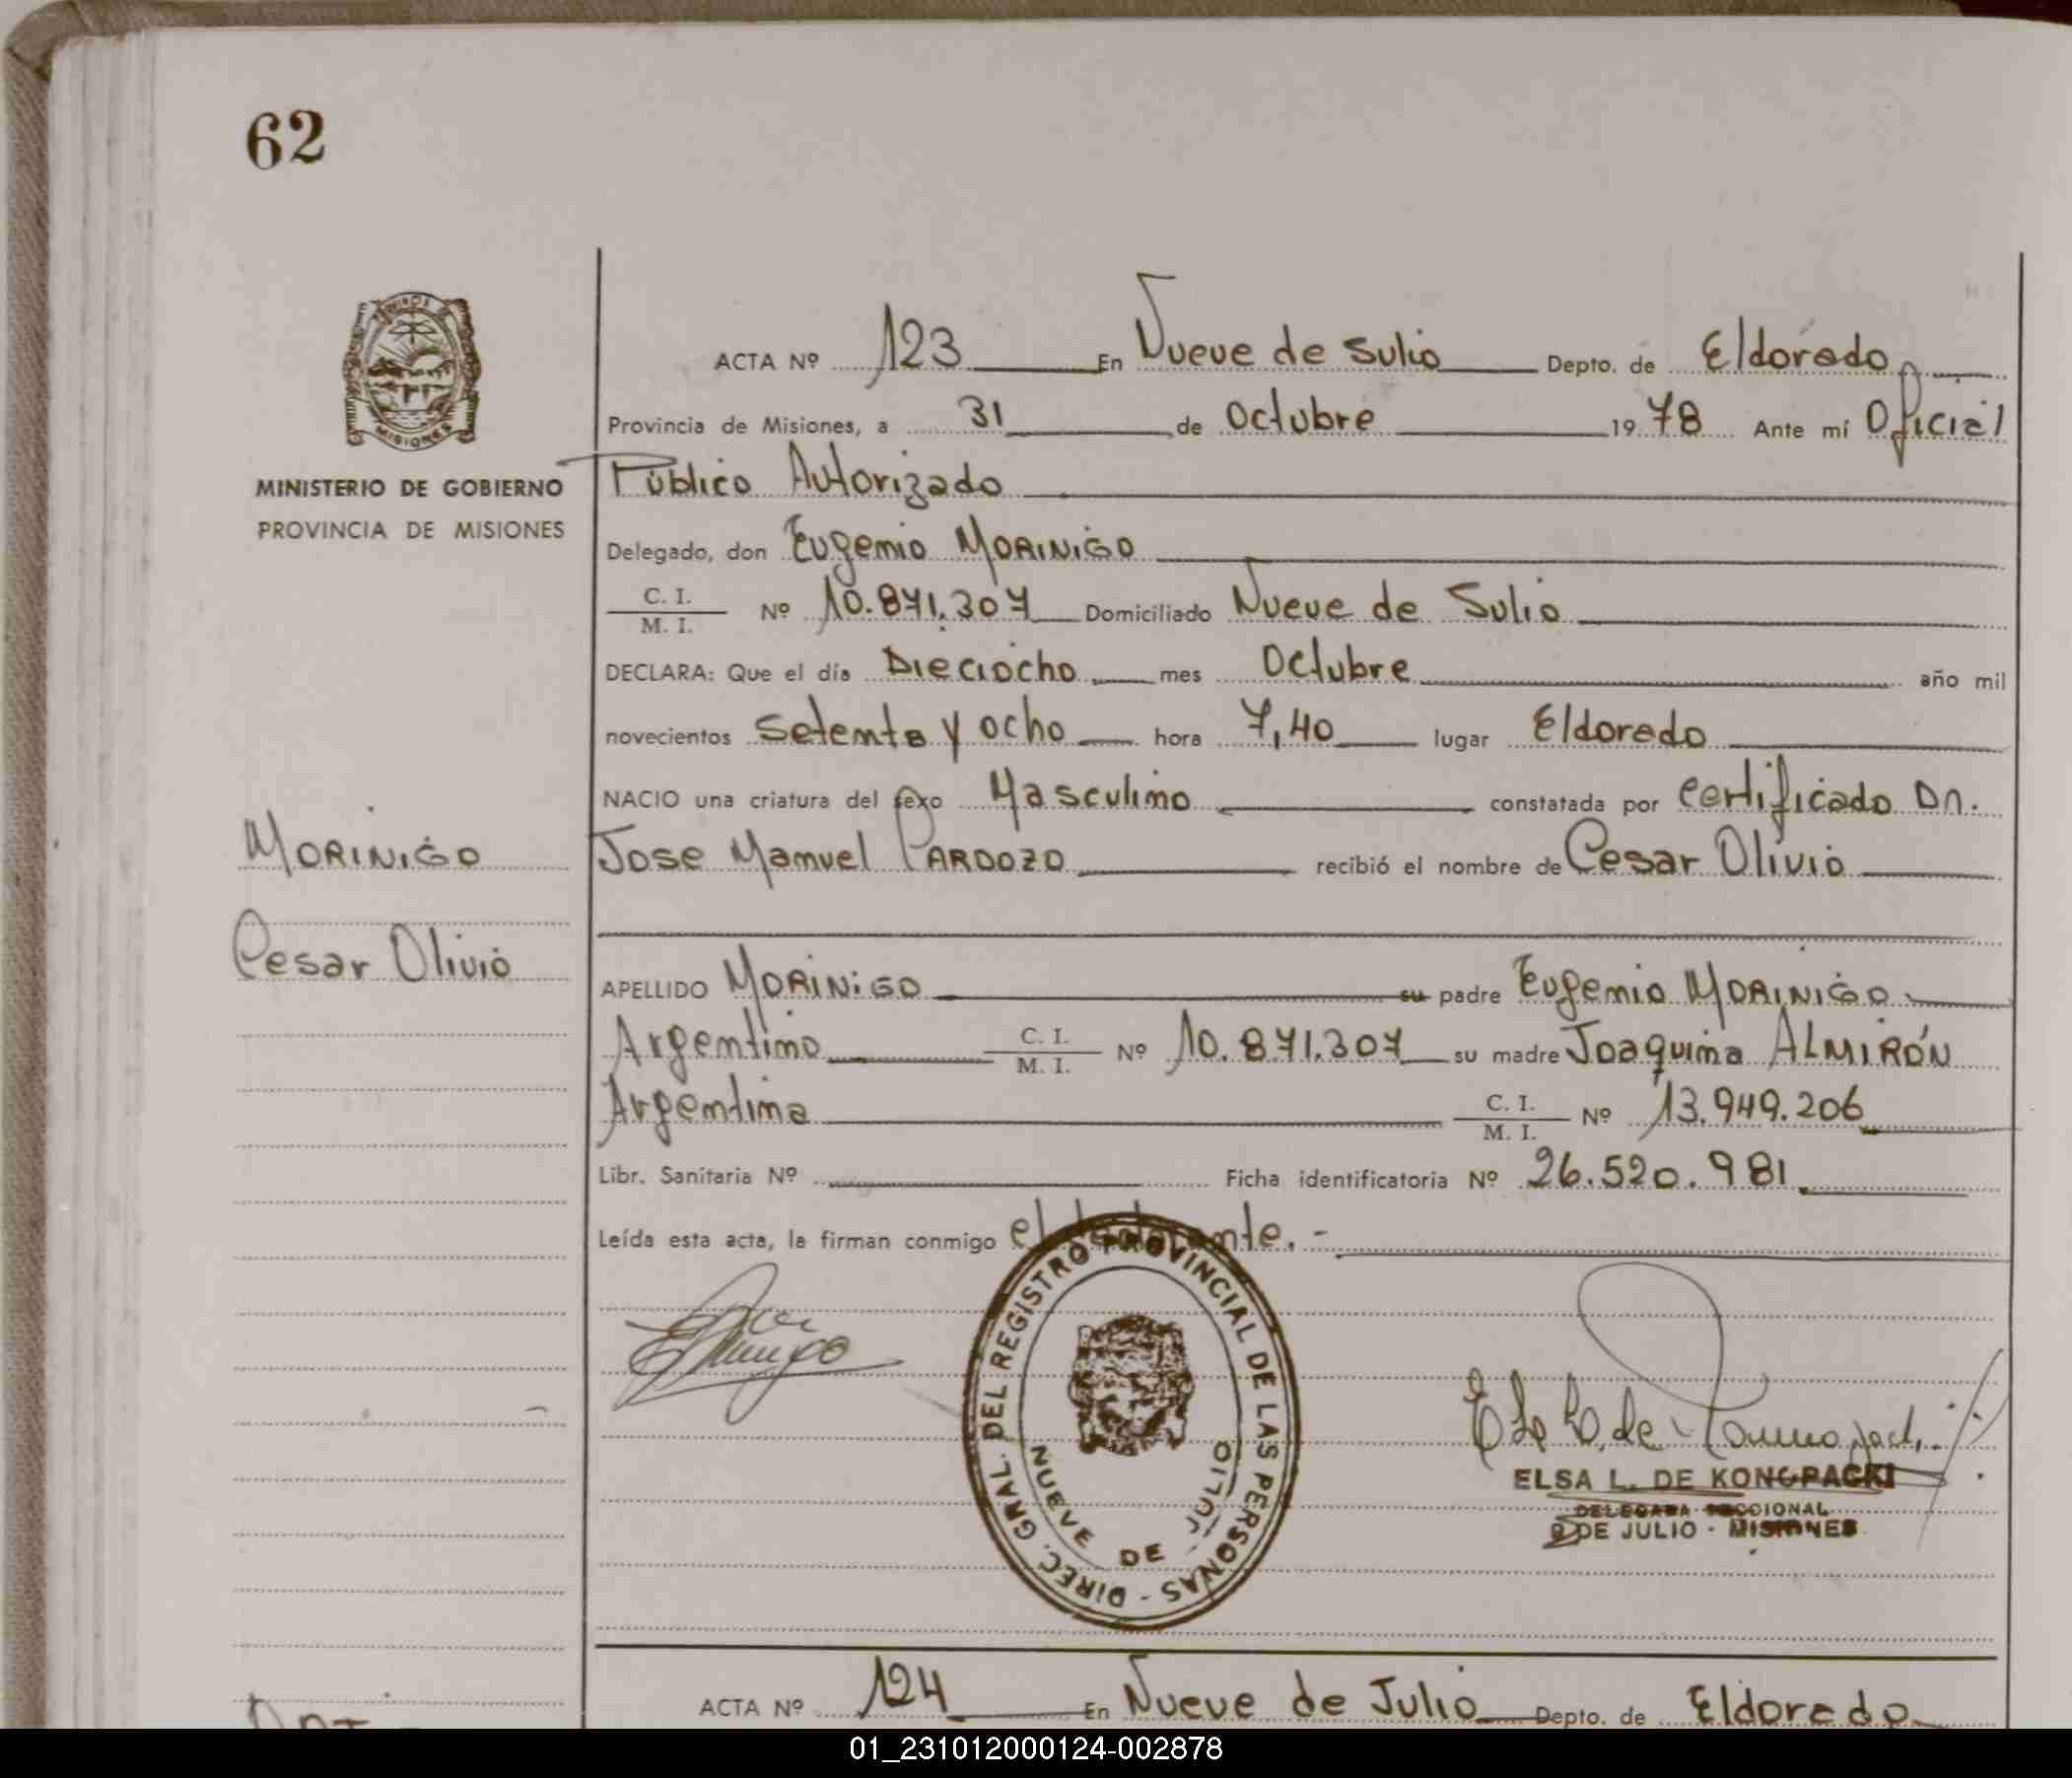 62
MISIONES
MINISTERIO DE GOBIERNO
PROVINCIA DE MISIONES
MORINIGO
Cesar Olivio
ACTA Nº 123 En Nueve de Sulio Depto. de Eldorado
Provincia de Misiones, a 31 de Octubre 1978 Ante mí Oficial
Público Autorizado
Delegado, don Eugenio MORINIGO
C. I.
M. I. Nº 10.871.307 Domiciliado Nueve de Sulio
DECLARA: Que el día Dieciocho mes Octubre año mil
novecientos setenta y ocho hora 7,40 lugar Eldorado
NACIO una criatura del sexo Masculino constatada por certificado Dn.
Jose Manuel CARDOZO recibió el nombre de Cesar Olivio
APELLIDO MORINIGO su padre Eugenio MORINIGO
Argentino C. I.
M. I. Nº 10.871.307 su madre Joaquina ALMIRÓN
Argentina C. I.
M. I. Nº 13.949.206
Libr. Sanitaria Nº Ficha identificatoria Nº 26.520.981
Leída esta acta, la firman conmigo el declarante.-
DIREC. GRAL. DEL REGISTRO PROVINCIAL DE LAS PERSONAS -
NUEVE DE JULIO
ELSA L. DE KONOPACKI
DELEGADA SECCIONAL
9 DE JULIO - MISIONES
ACTA Nº 124 En Nueve de Julio Depto. de Eldorado
01_231012000124-002878